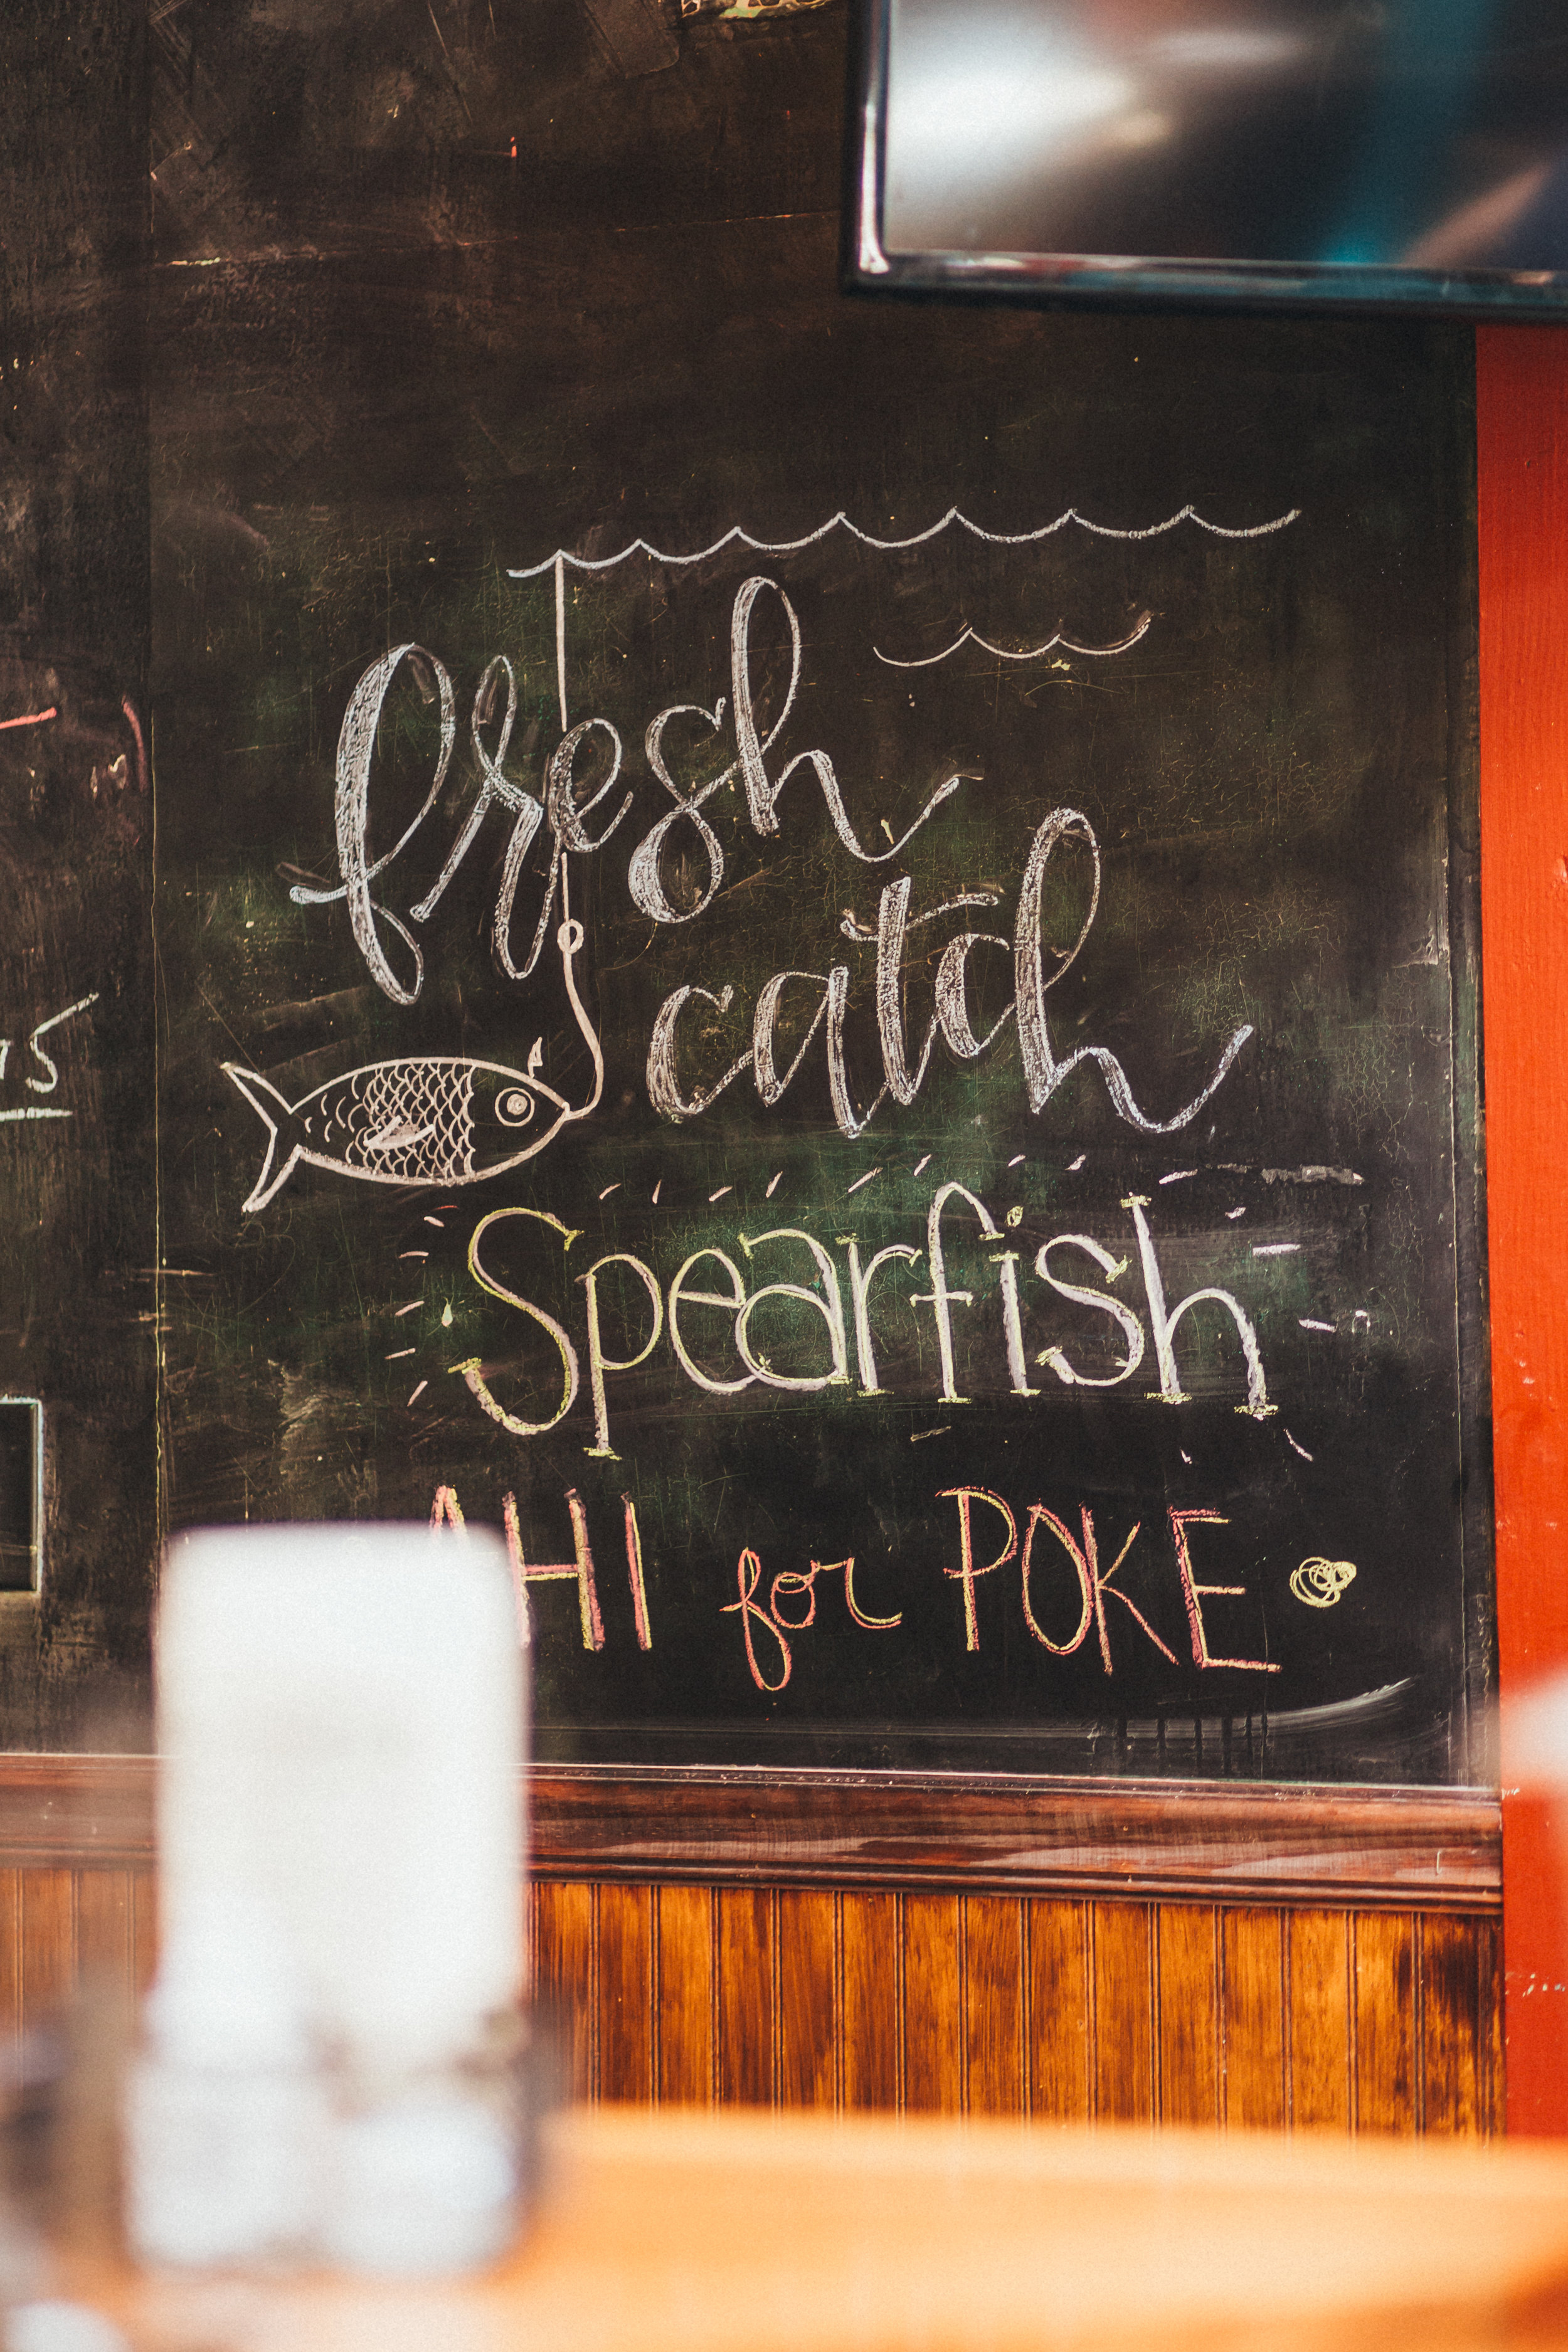 fresh
catch
Spearfish
AHI for POKE